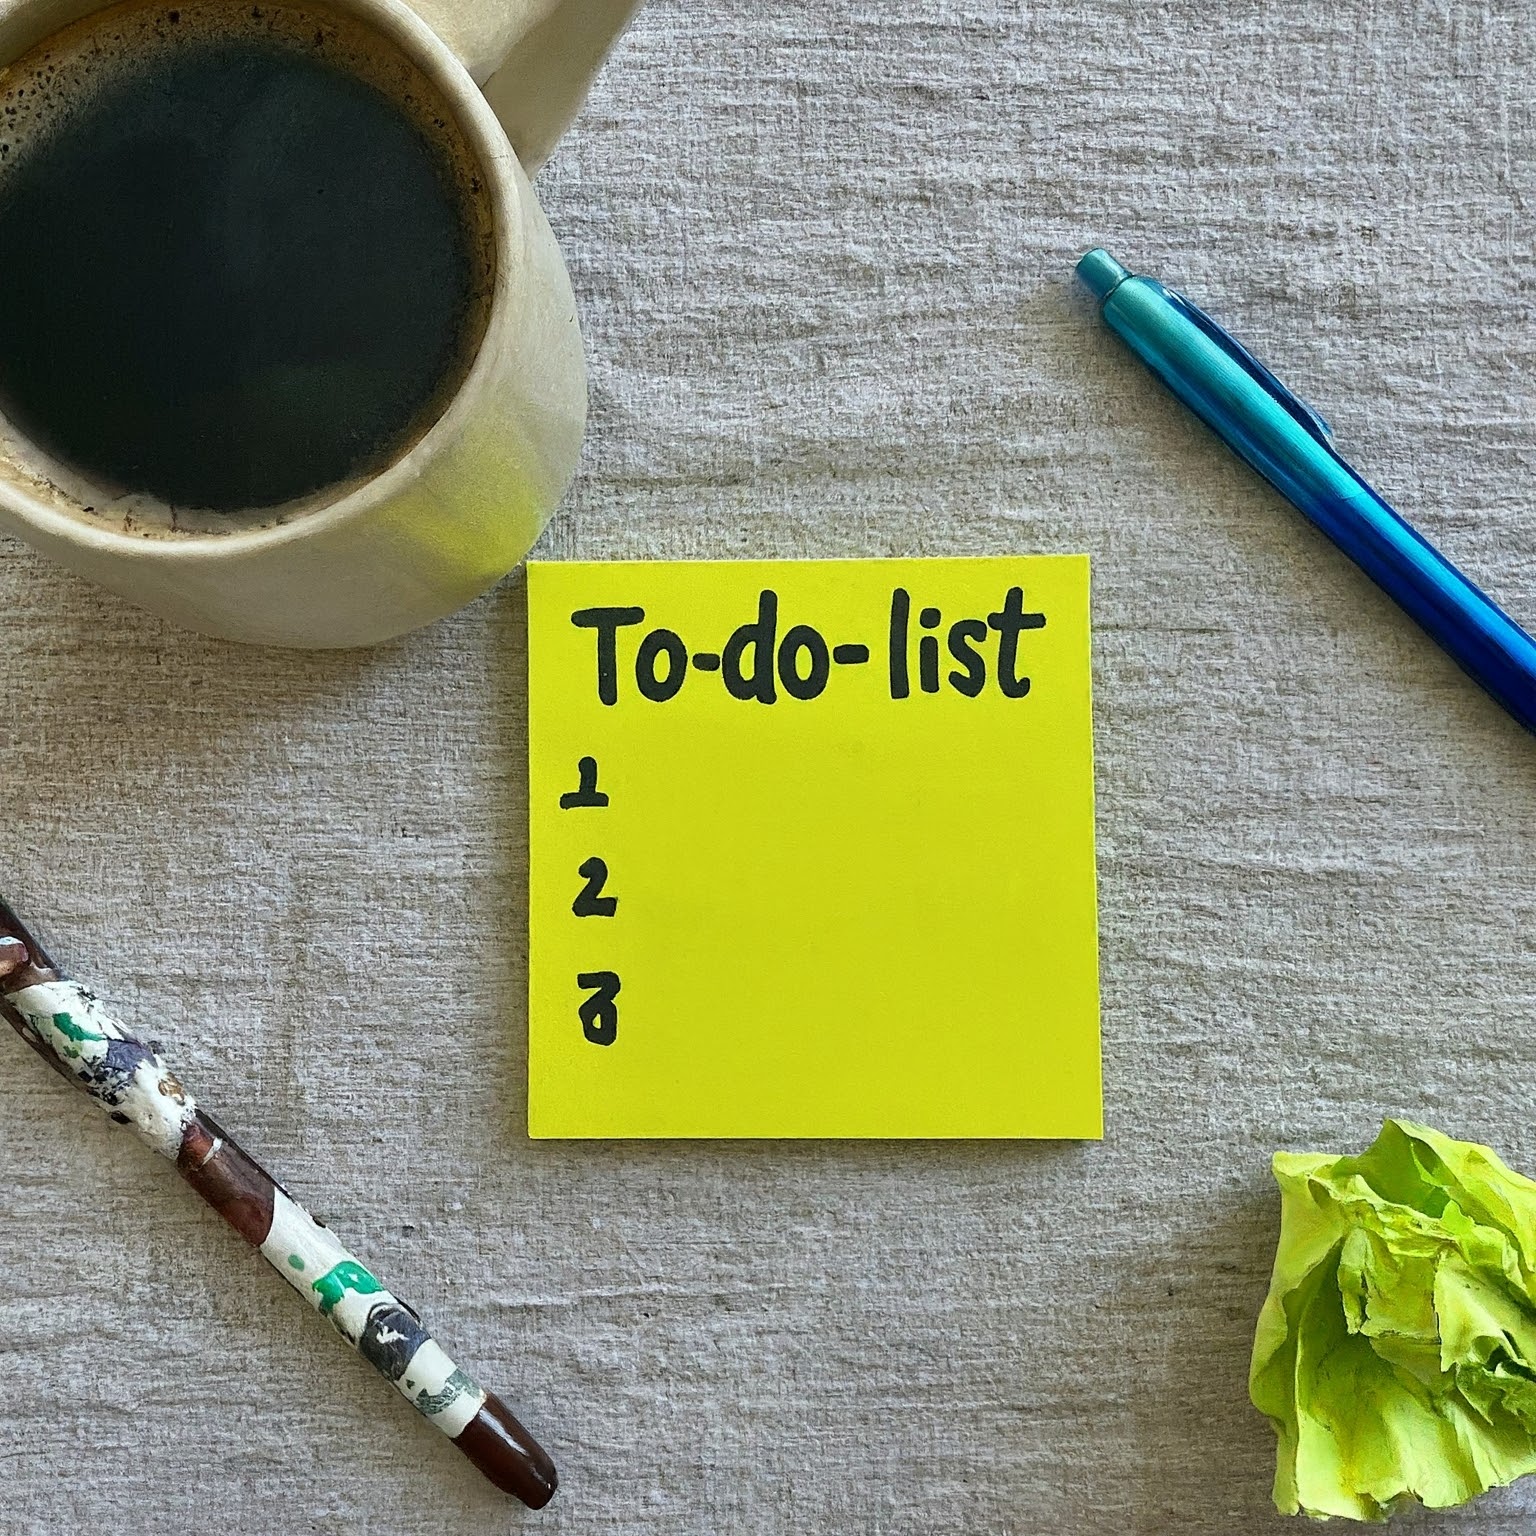 To-do-list
1
2
3